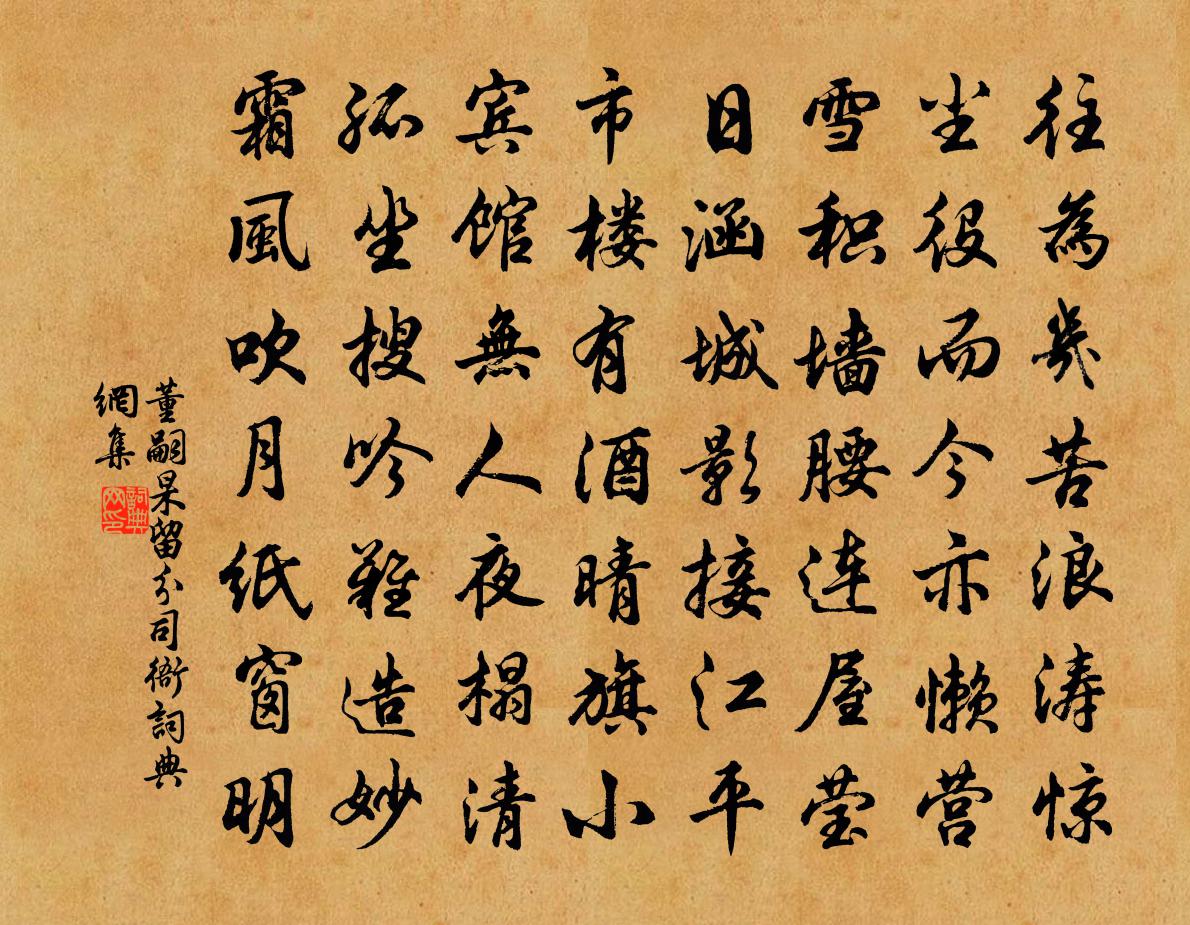 往為幾苦浪涛惊
尘役而今亦懒营
雪积墙腰连屋莹
日涵城影接江平
市楼有酒晴旗小
宾馆無人夜榻清
孤坐搜吟難造妙
霜風吹月纸窗明
董嗣杲留分司衙詞典
網集
詞典网印